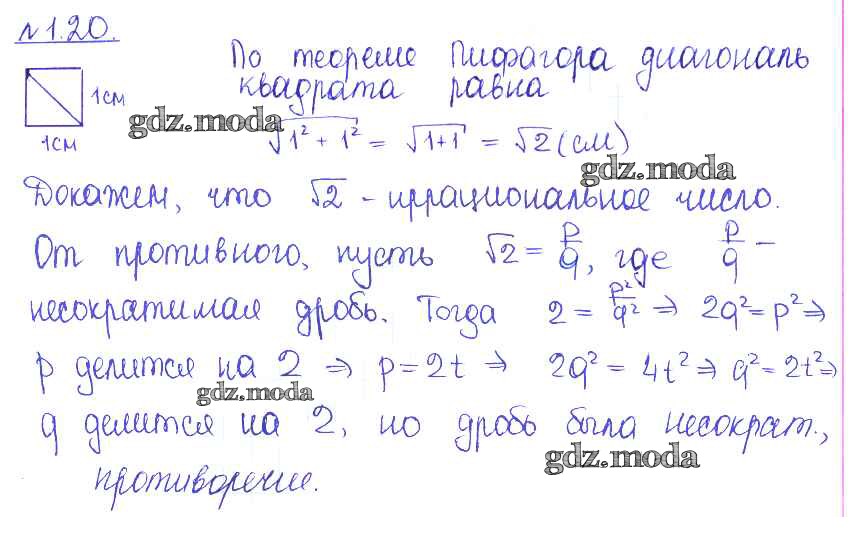 №1.20.
По теореме Пифагора диагональ
квадрата равна
1см
1см
gdz.moda
√1² + 1² = √1+1 = √2 (см)
gdz.moda
Докажем, что √2 - иррациональное число.
От противного, пусть √2 = p/q, где p/q -
несократимая дробь. Тогда 2 = p²/q² ⇒ 2q² = p² ⇒
p делится на 2 ⇒ p = 2t ⇒ 2q² = 4t² ⇒ q² = 2t² ⇒
gdz.moda
q делится на 2, но дробь была несократ.,
gdz.moda
противоречие.